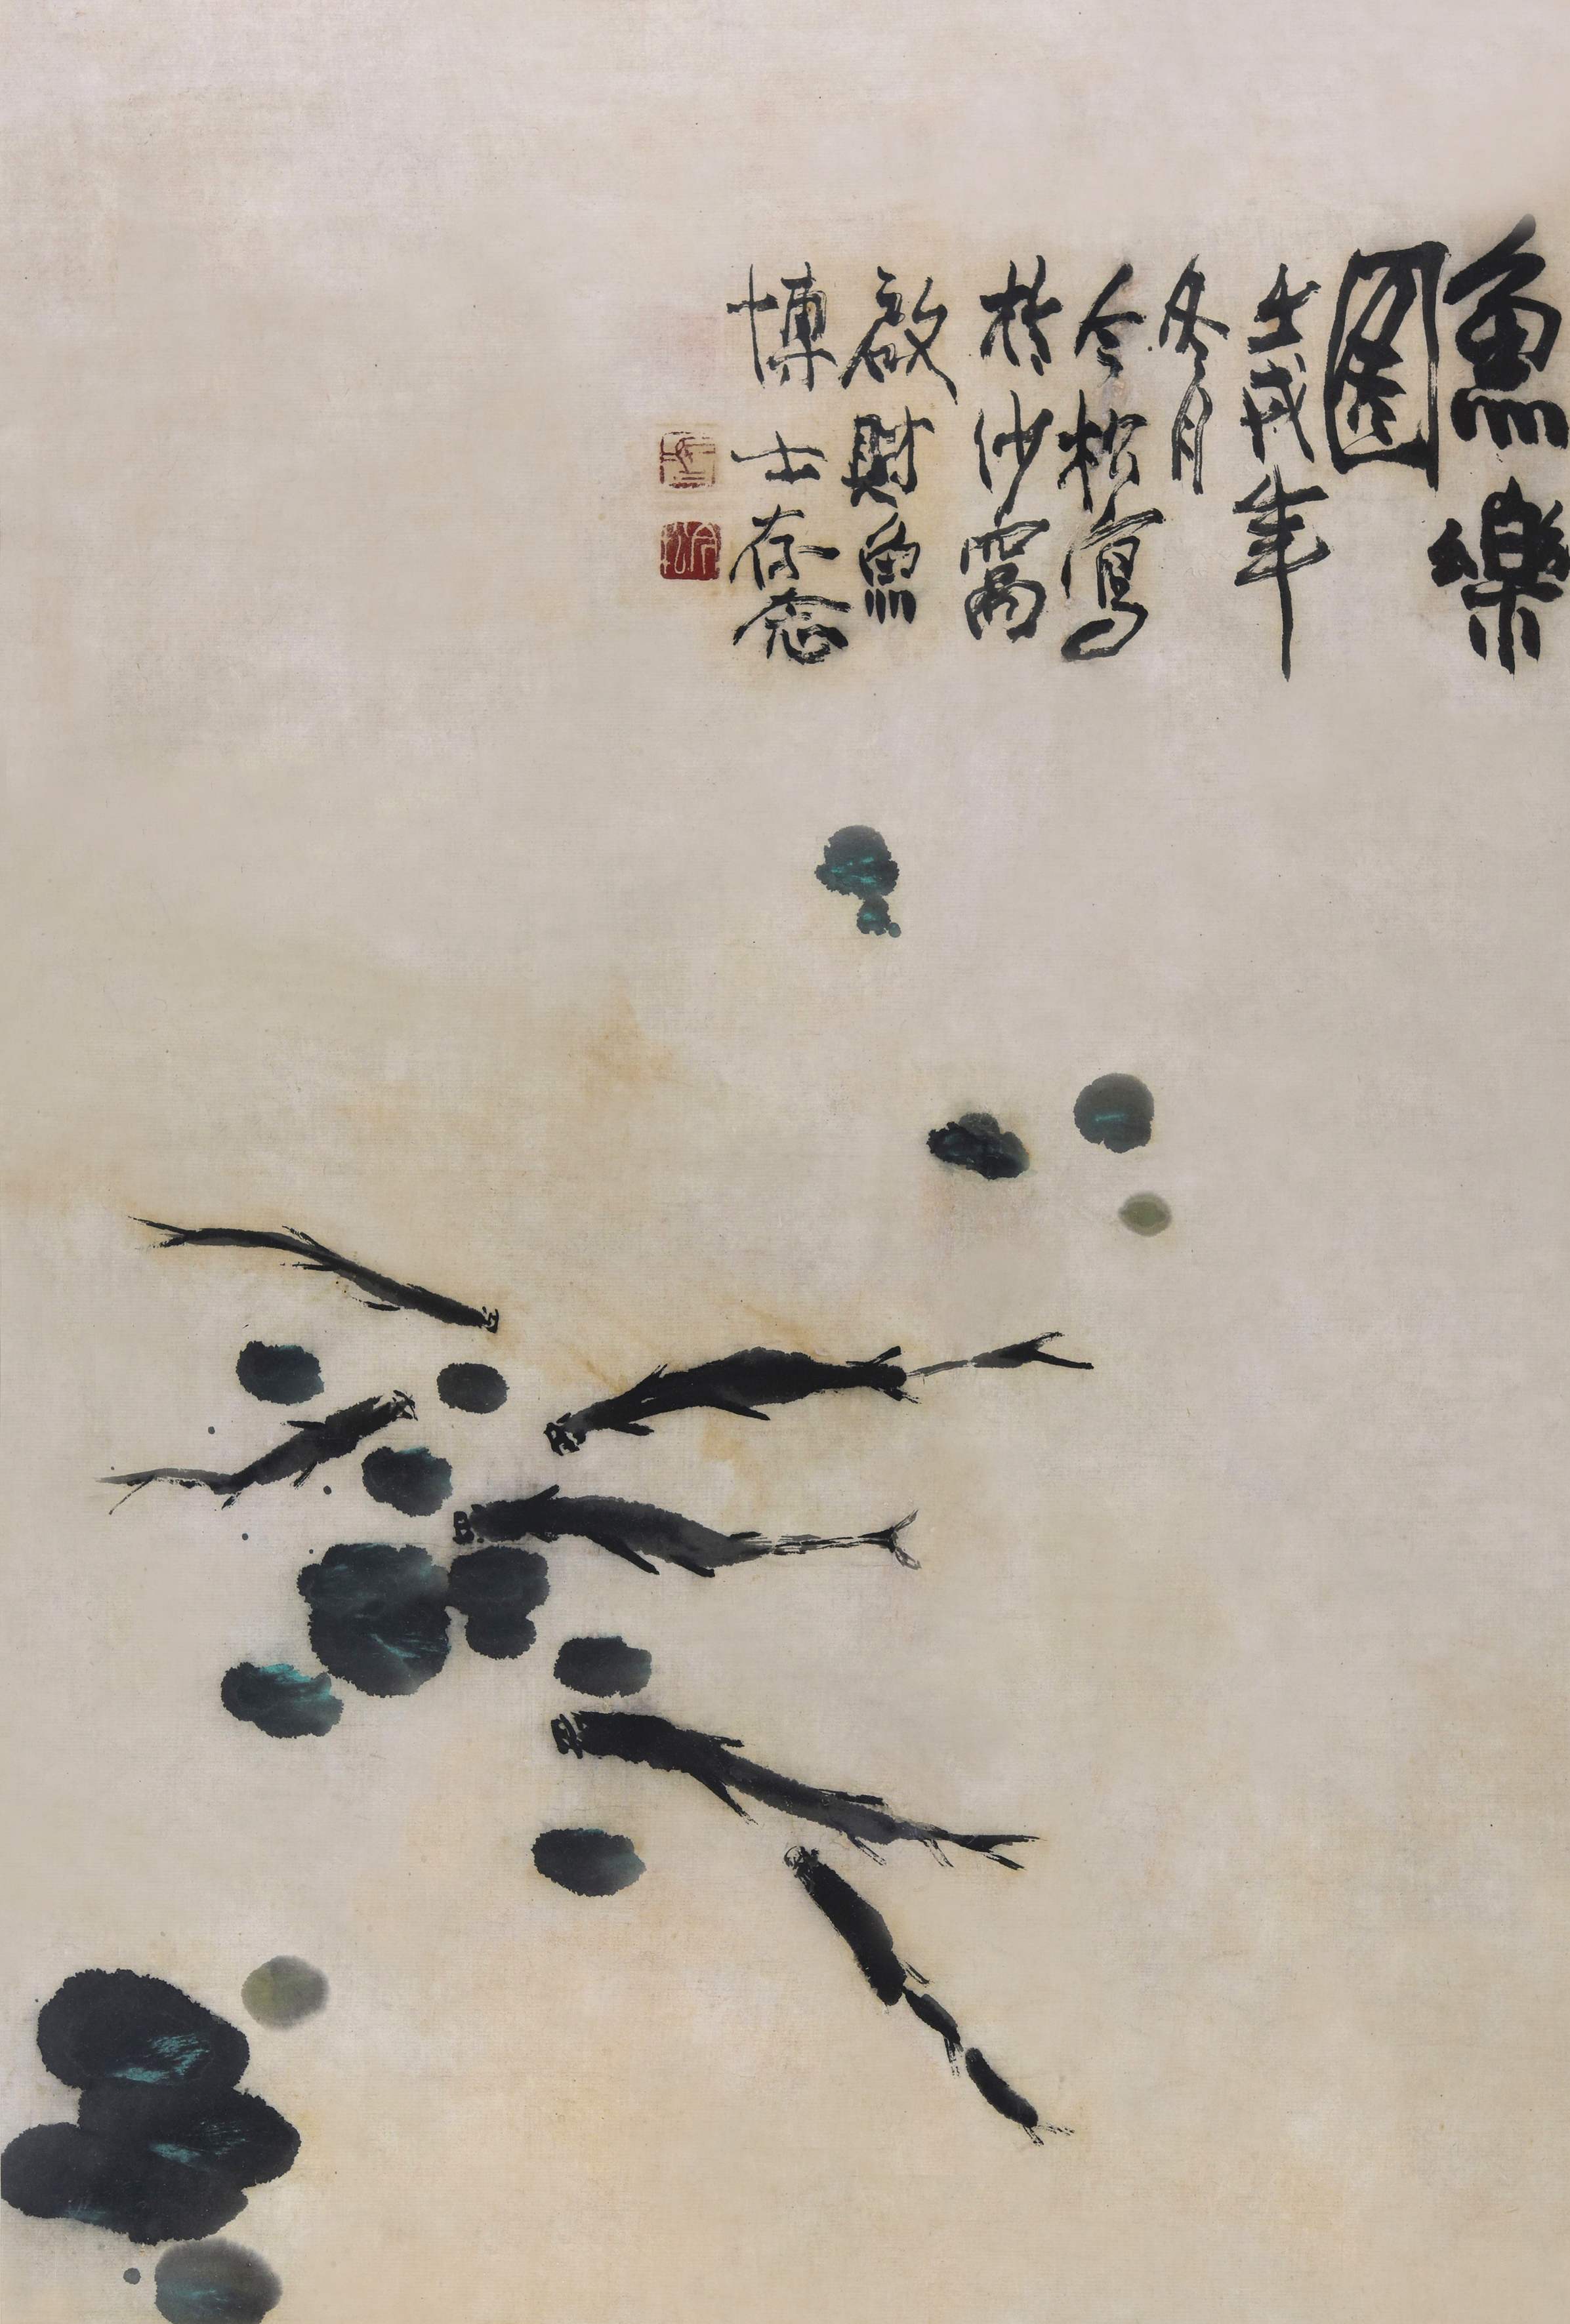 魚樂
圖
壬戌年
冬月
今松寫
於沙窩
啟財魚
博士存念